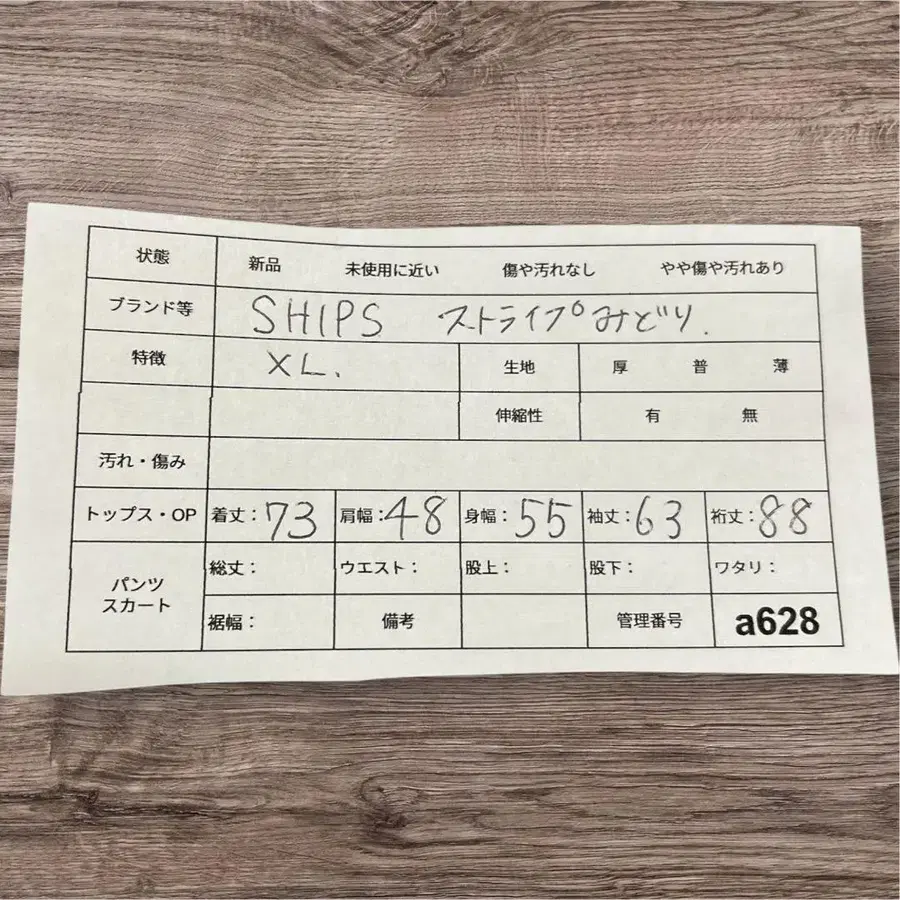 状態 新品 未使用に近い 傷や汚れなし やや傷や汚れあり
ブランド等 SHIPS ストライプみどり.
特徴 XL. 生地 厚 普 薄
伸縮性 有 無
汚れ・傷み
トップス・OP 着丈：73 肩幅：48 身幅：55 袖丈：63 裄丈：88
パンツ
スカート
総丈： ウエスト： 股上： 股下： ワタリ：
裾幅： 備考 管理番号 a628